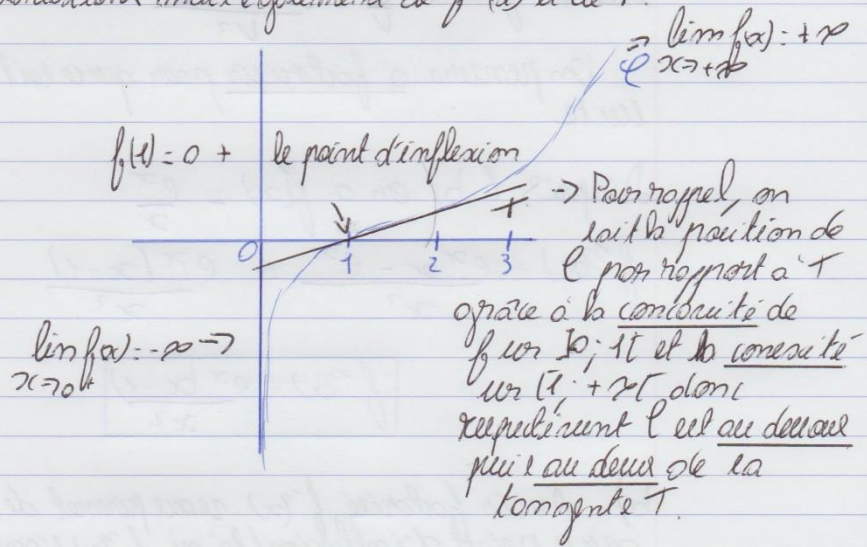 également de f'(x) et de T.
⇒ lim f(x) = +∞
x→+∞
𝒞
f(1) = 0 + le point d'inflexion
T
→ Pour rappel, on
sait la position de
𝒞 par rapport à T
grâce à la concavité de
f sur ]0; 1[ et la convexité
sur [1; +∞[ donc
respectivement 𝒞 est au dessous
puis au dessus de la
tangente T.
0 1 2 3
lim f(x) = -∞ →
x→0⁺